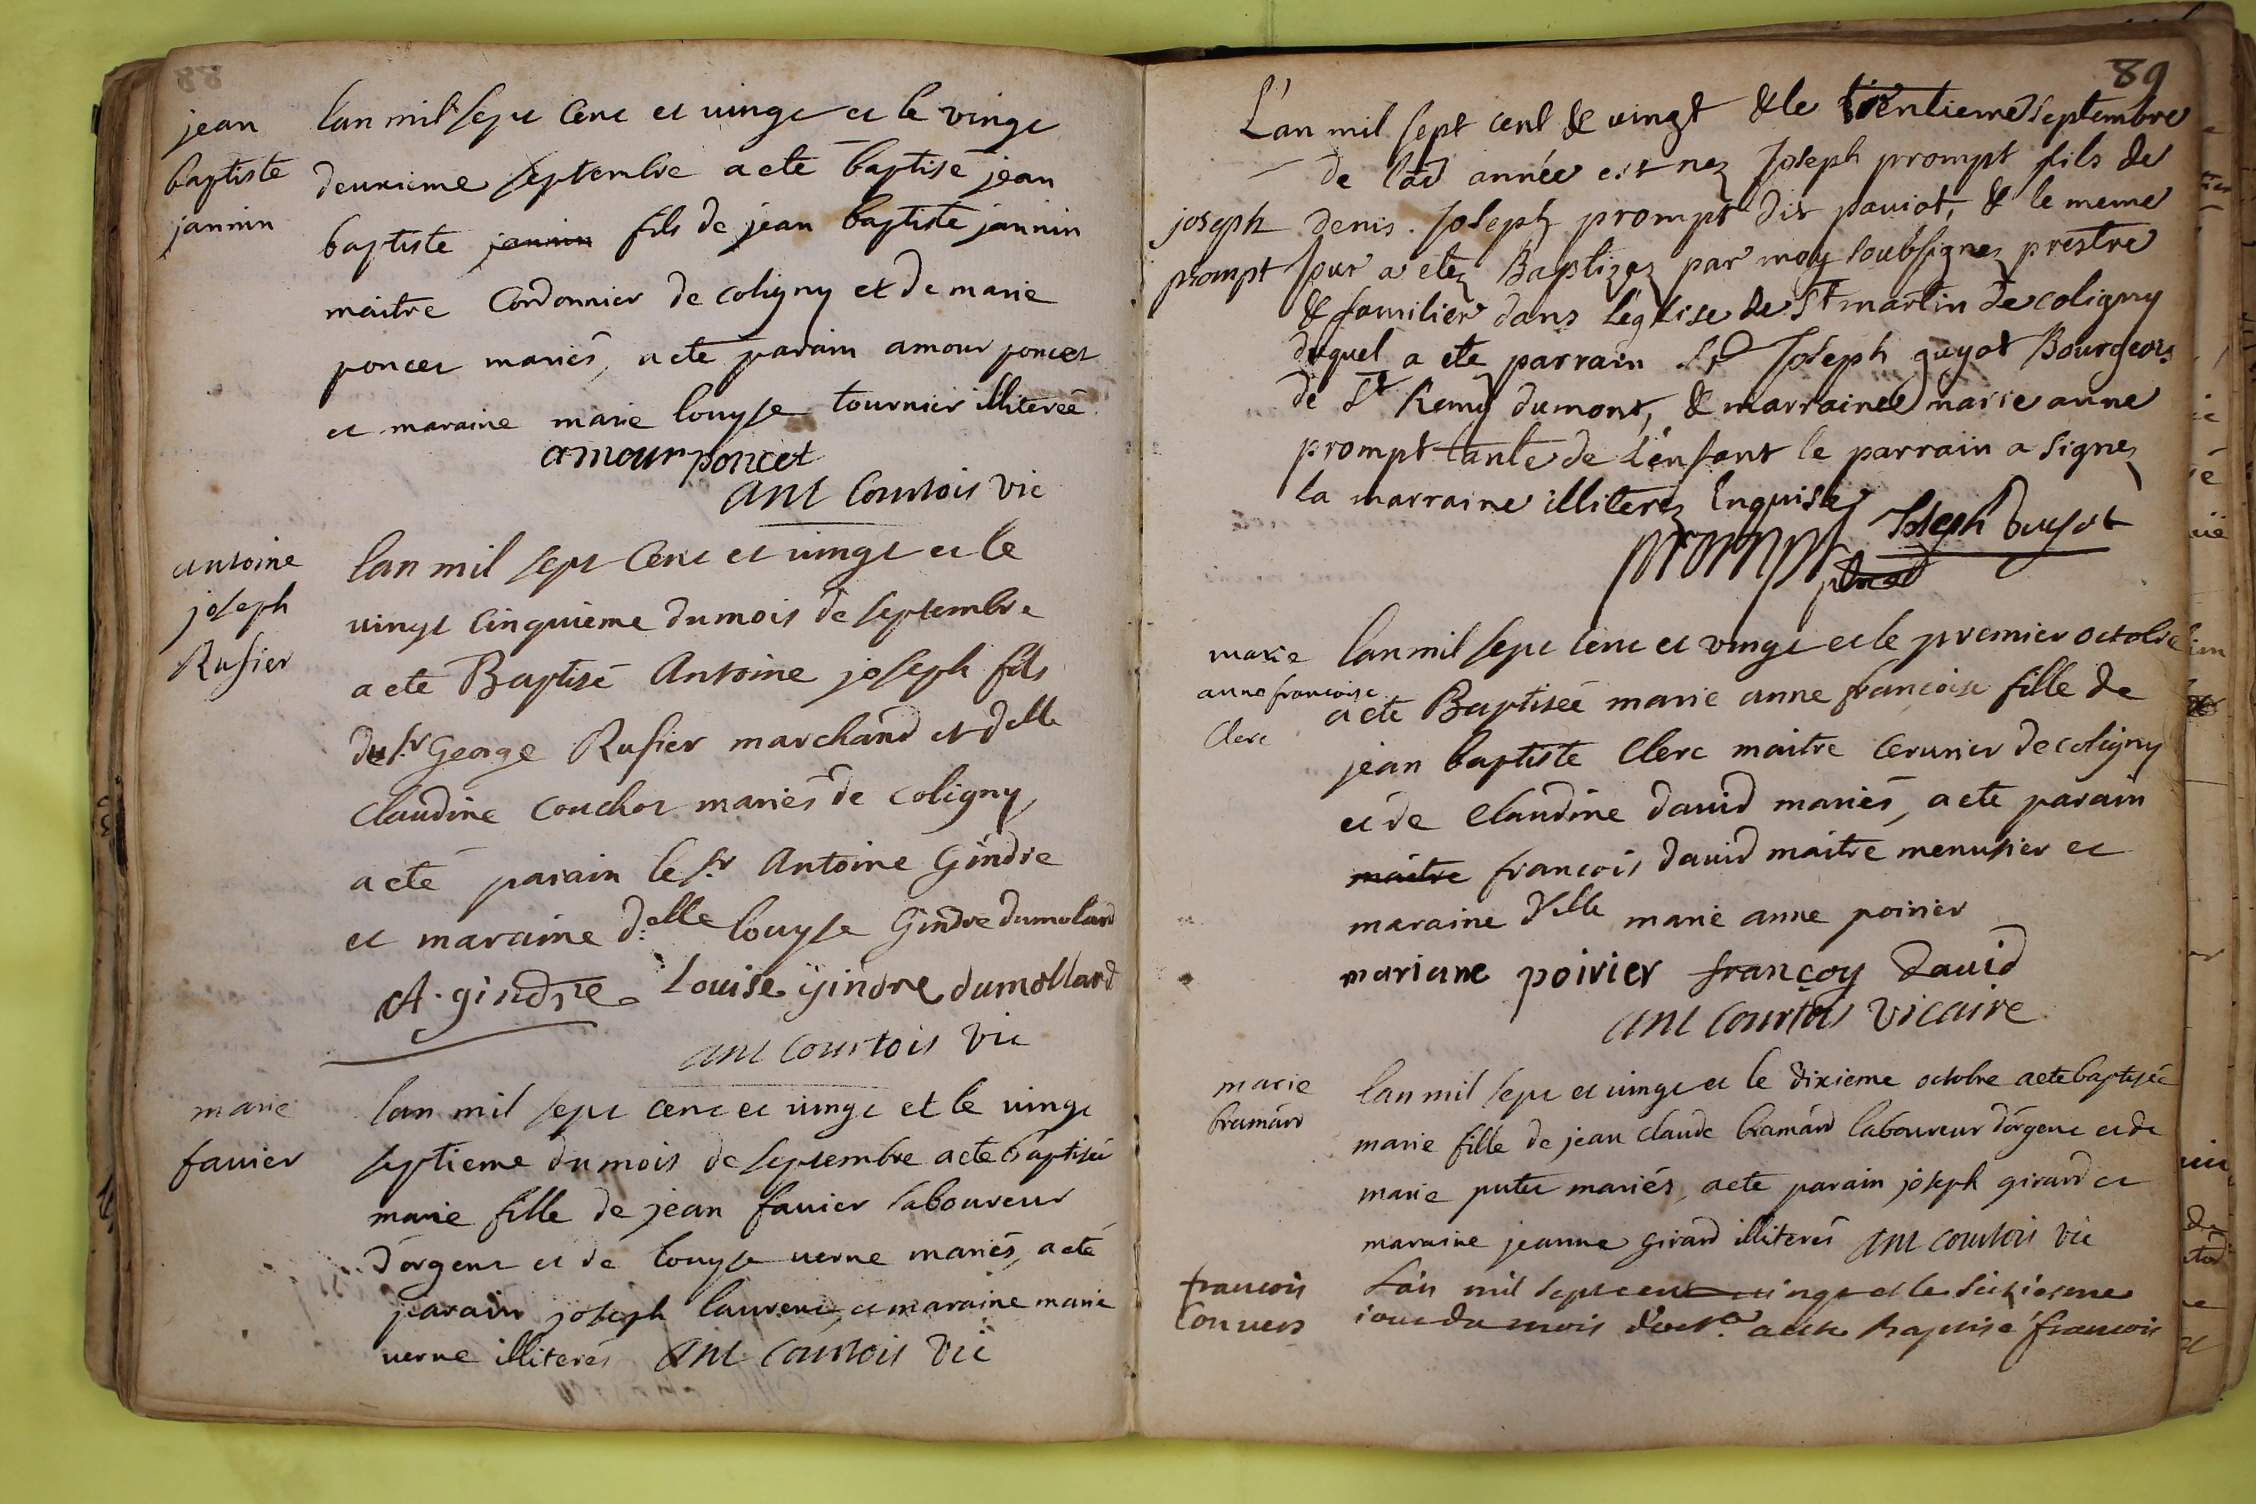 jean
baptiste
jannin
lan mil sept Cent et vingt et le vingt
deuxieme septembre a eté baptisé jean
baptiste jannin fils de jean baptiste jannin
maitre Cordonnier de coligny et de marie
poncet mariés, a eté parain amour poncet
et maraine marie louyse tournier illitereé
amour poncet
Ant Courtois vic
antoine
joseph
Rufier
lan mil sept Cent et vingt et le
vingt Cinquieme du mois de septembre
a eté Baptisé Antoine joseph fils
du sr George Rufier marchand et delle
Claudine Couchot mariés de Coligny,
a eté parain le sr Antoine Gindre
et maraine d.elle louyse Gindre dumolard
A. gindre Louise gindre dumollard
Ant Courtois vic
marie
favier
lan mil sept cent et vingt et le vingt
septieme du mois de septembre a eté baptiseé
marie fille de jean favier laboureur
dórgent et de louyse verne mariés, a eté
parain joseph laurent, et maraine marie
verne illiterés Ant Courtois vic
89
L'an mil sept cent & vingt & le trentieme septembre
de lad année est nez Joseph prompt fils de
joseph
prompt
denis. Joseph prompt dit paviot, & le meme
Jour a etez Baptizez par moy soubsignez prestre
& familier dans l'église de St martin de coligny
duquel a ete parrain Sr Joseph guyot Bourgeois
de St Remy dumont, & marraine marie anne
prompt tante de l'enfant le parrain a signez
la marraine illiterez Enquise
prompt Joseph Guyot
marie
anne francoise
Clerc
lan mil sept cent et vingt et le premier octobre
a eté Baptiseé marie anne francoise fille de
jean baptiste Clerc maitre cerurier de coligny
et de Claudine david mariés, a eté parain
maitre francois david maitre menusier et
maraine d'elle marie anne poirier
mariane poirier françoy david
Ant Courtois vicaire
marie
bramard
lan mil sept et vingt et le dixieme octobre a eté baptiseé
marie fille de jean claude bramard laboureur dórgent et de
marie putet mariés, a eté parain joseph girard et
maraine jeanne girard illiterés Ant Courtois vic
francois
Convers
L'an mil sept cent vingt et le seiziesme
iour du mois d'oct.e a este Baptisé francois